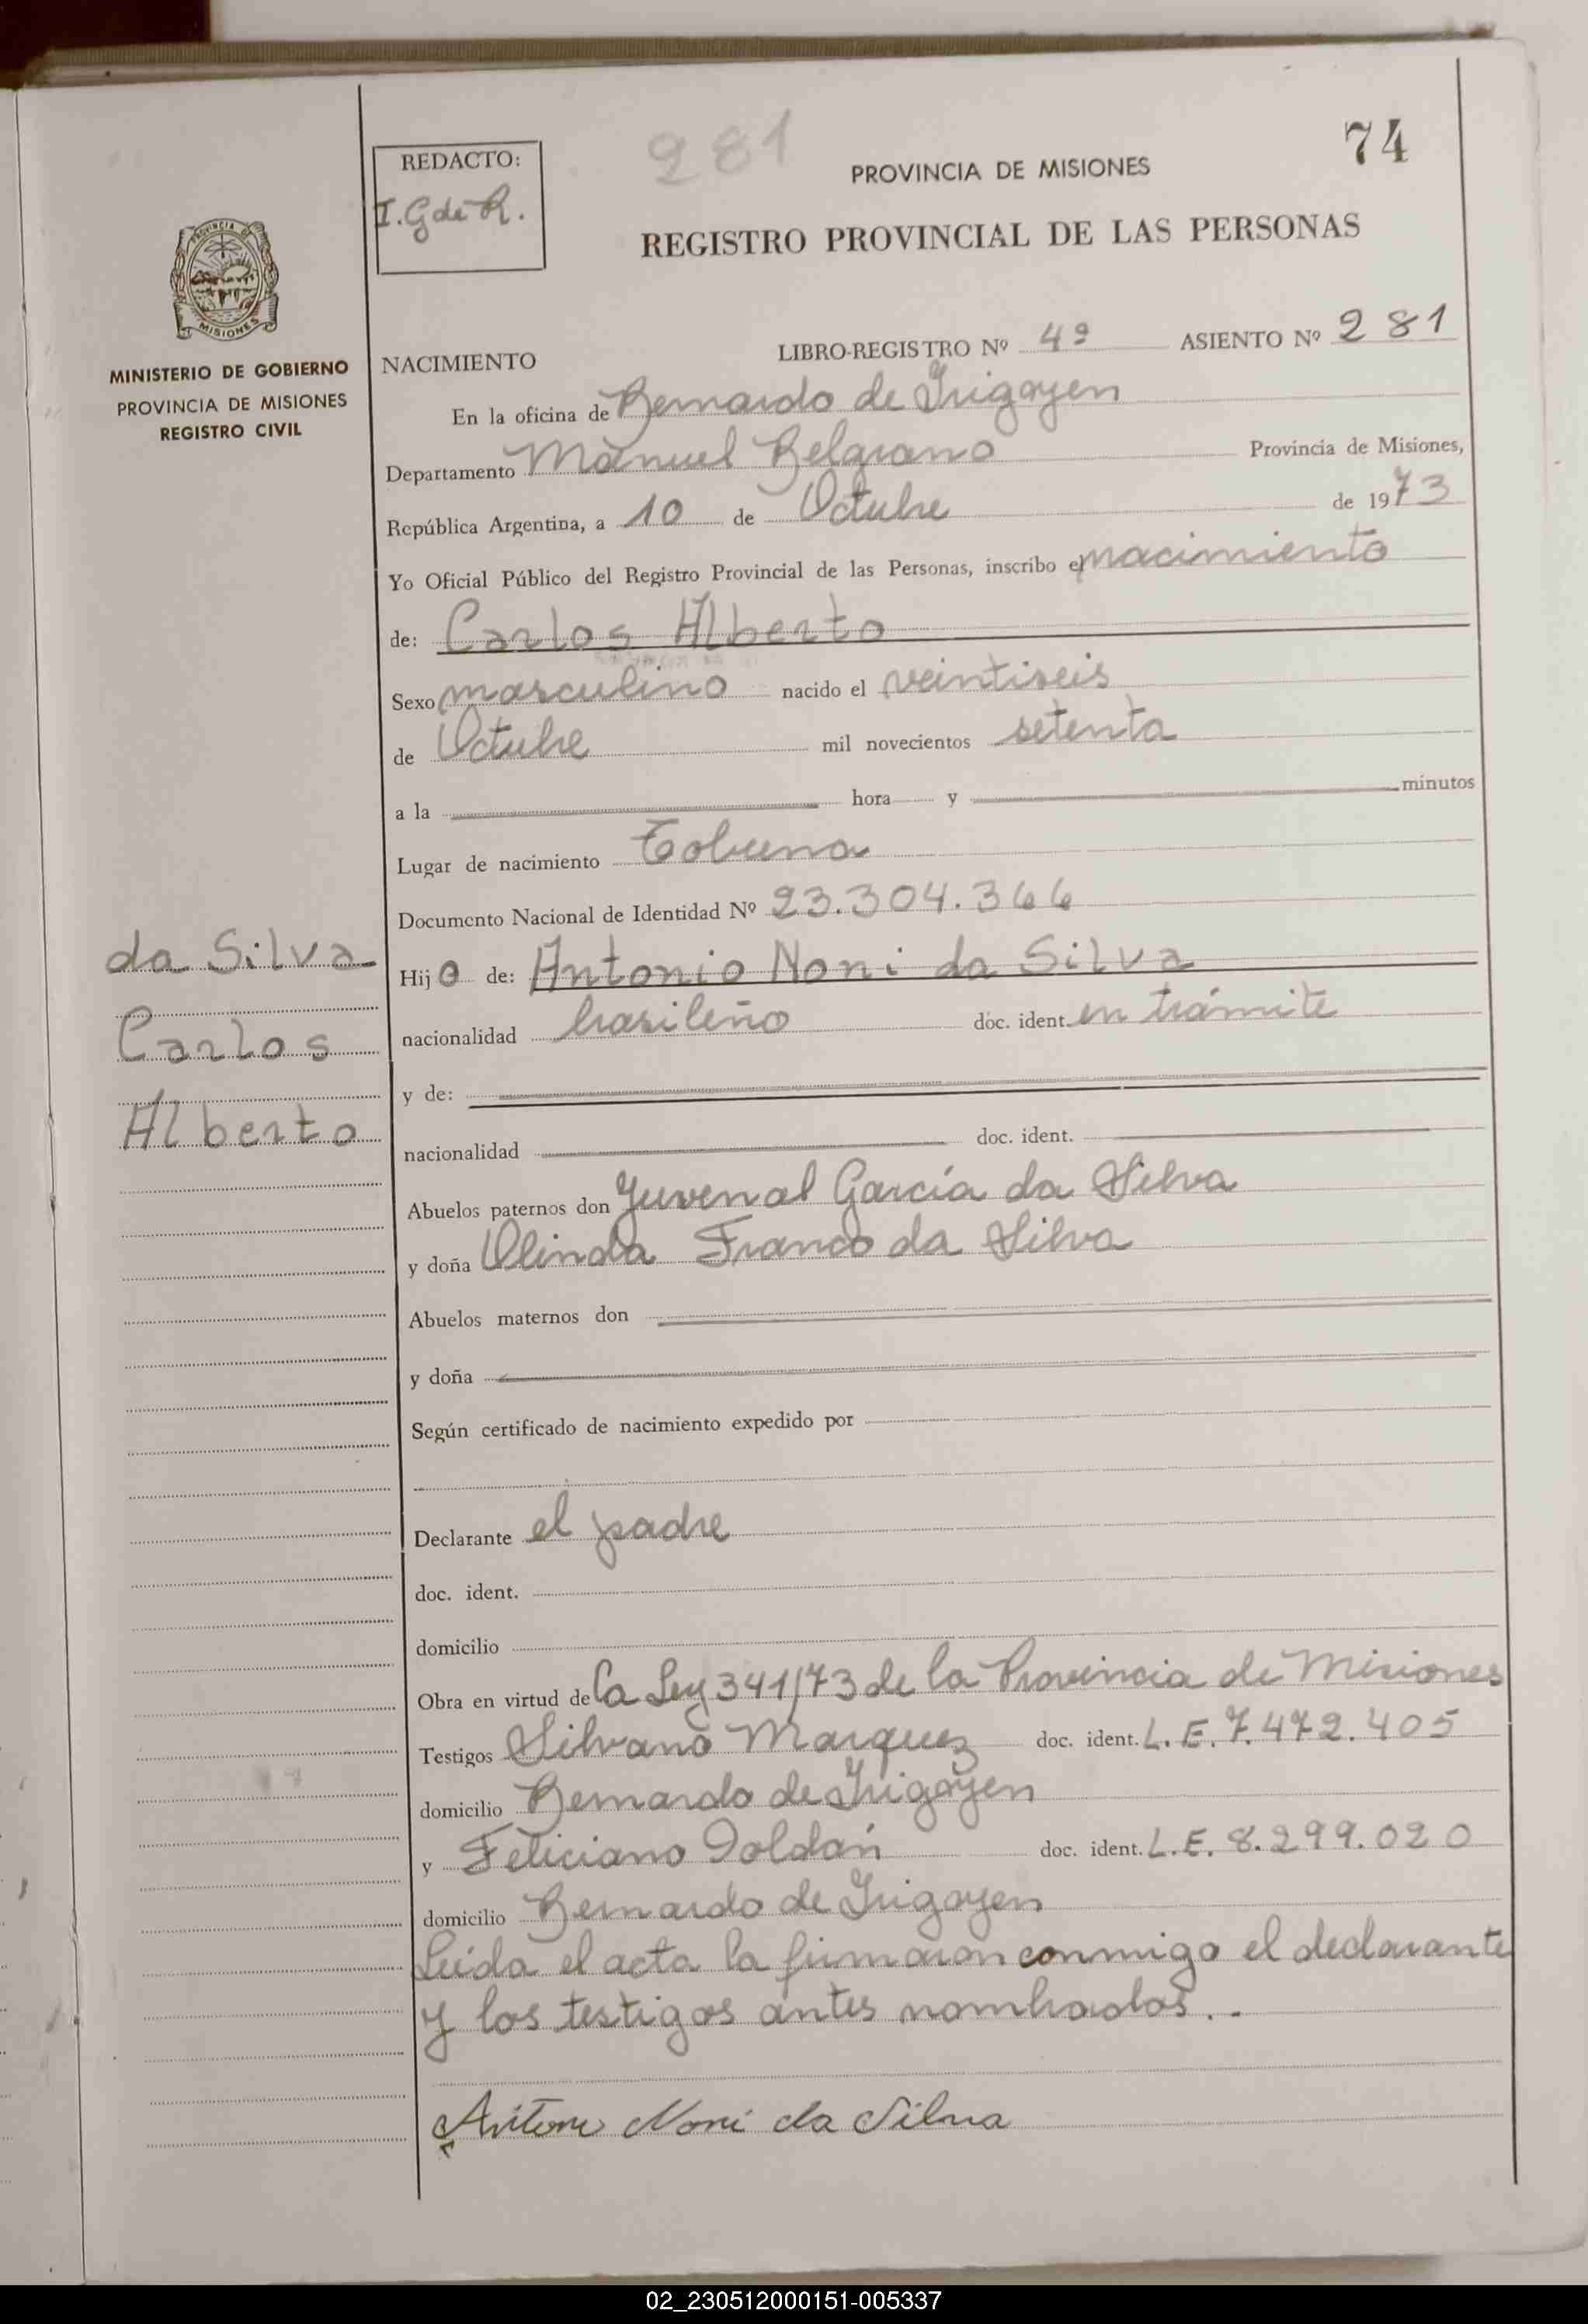 REDACTO:
I. G de R.
281
PROVINCIA DE MISIONES
74
REGISTRO PROVINCIAL DE LAS PERSONAS
PROVINCIA DE
MISIONES
MINISTERIO DE GOBIERNO
PROVINCIA DE MISIONES
REGISTRO CIVIL
NACIMIENTO LIBRO-REGISTRO Nº 4º ASIENTO Nº 281
En la oficina de Bernardo de Irigoyen
Departamento Manuel Belgrano Provincia de Misiones,
República Argentina, a 10 de Octubre de 1973
Yo Oficial Público del Registro Provincial de las Personas, inscribo el nacimiento
de: Carlos Alberto
Sexo masculino nacido el veintiseis
de Octubre mil novecientos setenta
a la hora y minutos
Lugar de nacimiento Tobuna
Documento Nacional de Identidad Nº 23.304.366
da Silva
Carlos
Alberto
Hijo de: Antonio Noni da Silva
nacionalidad brasileño doc. ident. en trámite
y de:
nacionalidad doc. ident.
Abuelos paternos don Juvenal García da Silva
y doña Olinda Franco da Silva
Abuelos maternos don
y doña
Según certificado de nacimiento expedido por
Declarante el padre
doc. ident.
domicilio
Obra en virtud de la Ley 341/73 de la Provincia de Misiones
Testigos Silvano Marquez doc. ident. L.E. 7.472.405
domicilio Bernardo de Irigoyen
y Feliciano Doldán doc. ident. L.E. 8.299.020
domicilio Bernardo de Irigoyen
Leída el acta la firmaron conmigo el declarante
y los testigos antes nombrados..
Antonio Noni da Silva
02_230512000151-005337